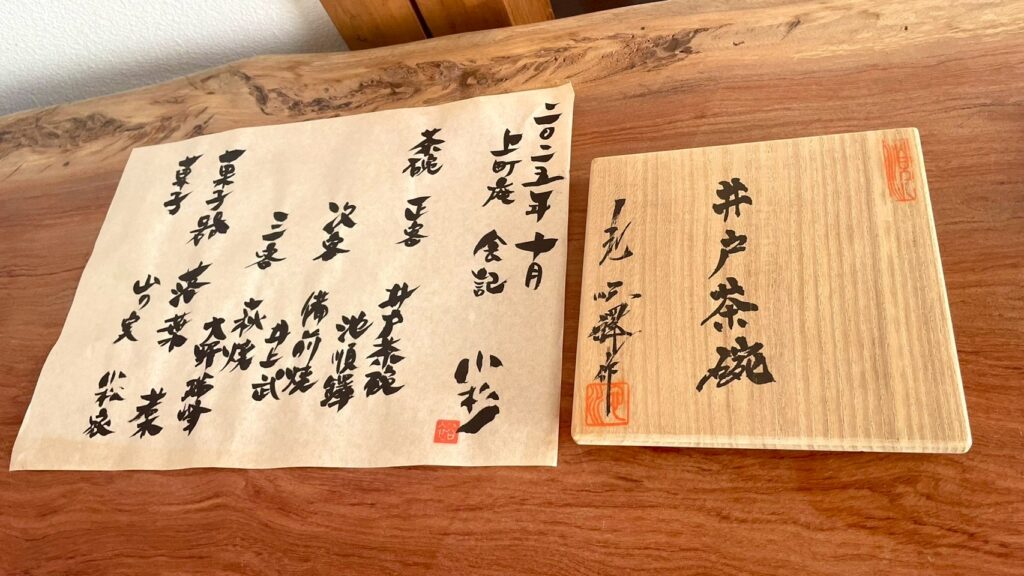 二〇二五年 十月
上町庵 会記
小松
茶碗 正客 井戸茶碗
池順鐸
次客 備前焼
井上武
三客 萩焼
大野瑞峰
菓子器 落葉
菓子 山の実
小松家
井戸茶碗